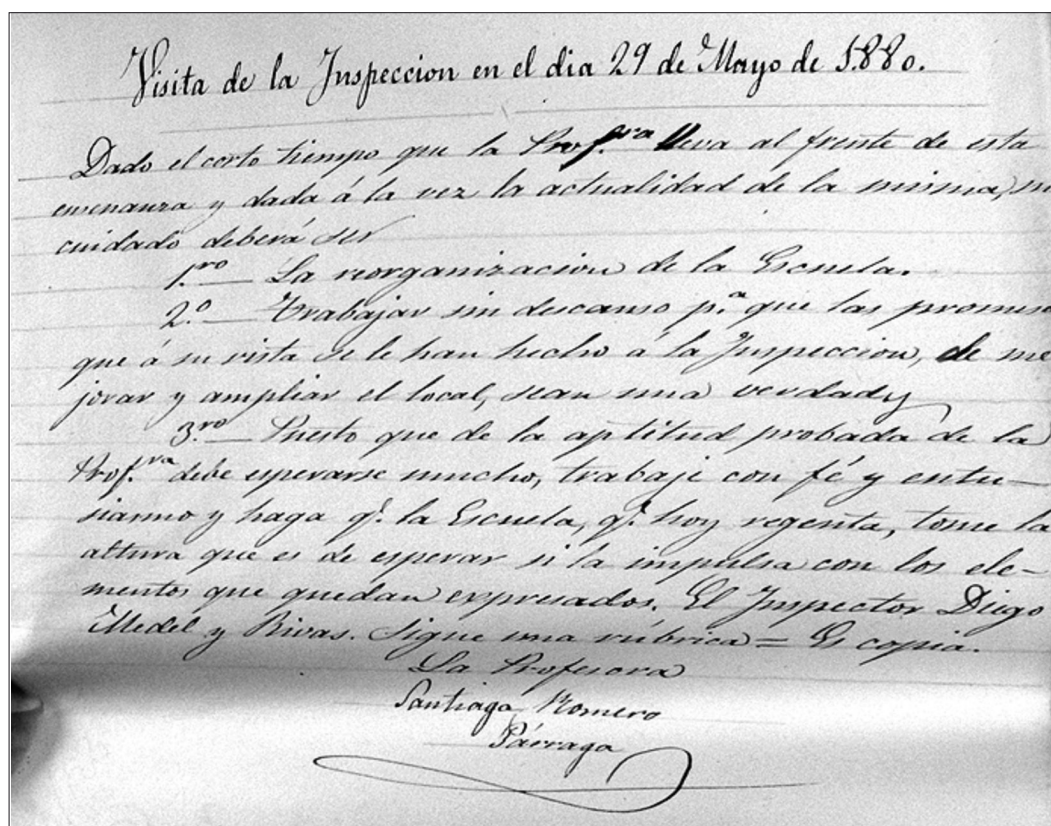 Visita de la Inspeccion en el dia 29 de Mayo de 1.880.
Dado el corto tiempo que la Prof.ra lleva al frente de esta
ensenanza y dada á la vez la actualidad de la misma, su
cuidado deberá ser
1.ro — La reorganizacion de la Escuela.
2.o — Trabajar sin descanso p.a que las promes
que á su vista se le han hecho á la Inspeccion, de me
jorar y ampliar el local, sean una verdad y
3.ro — Puesto que de la aptitud probada de la
Prof.ra debe esperarse mucho, trabaje con fé y entu-
siasmo y haga q.e la Escuela, q.e hoy regenta, tome la
altura que es de esperar si la impulsa con los ele-
mentos que quedan expresados. El Inspector Diego
Medel y Rivas. Sigue una rúbrica = Es copia.
La Profesora
Santiaga Romero
Párraga